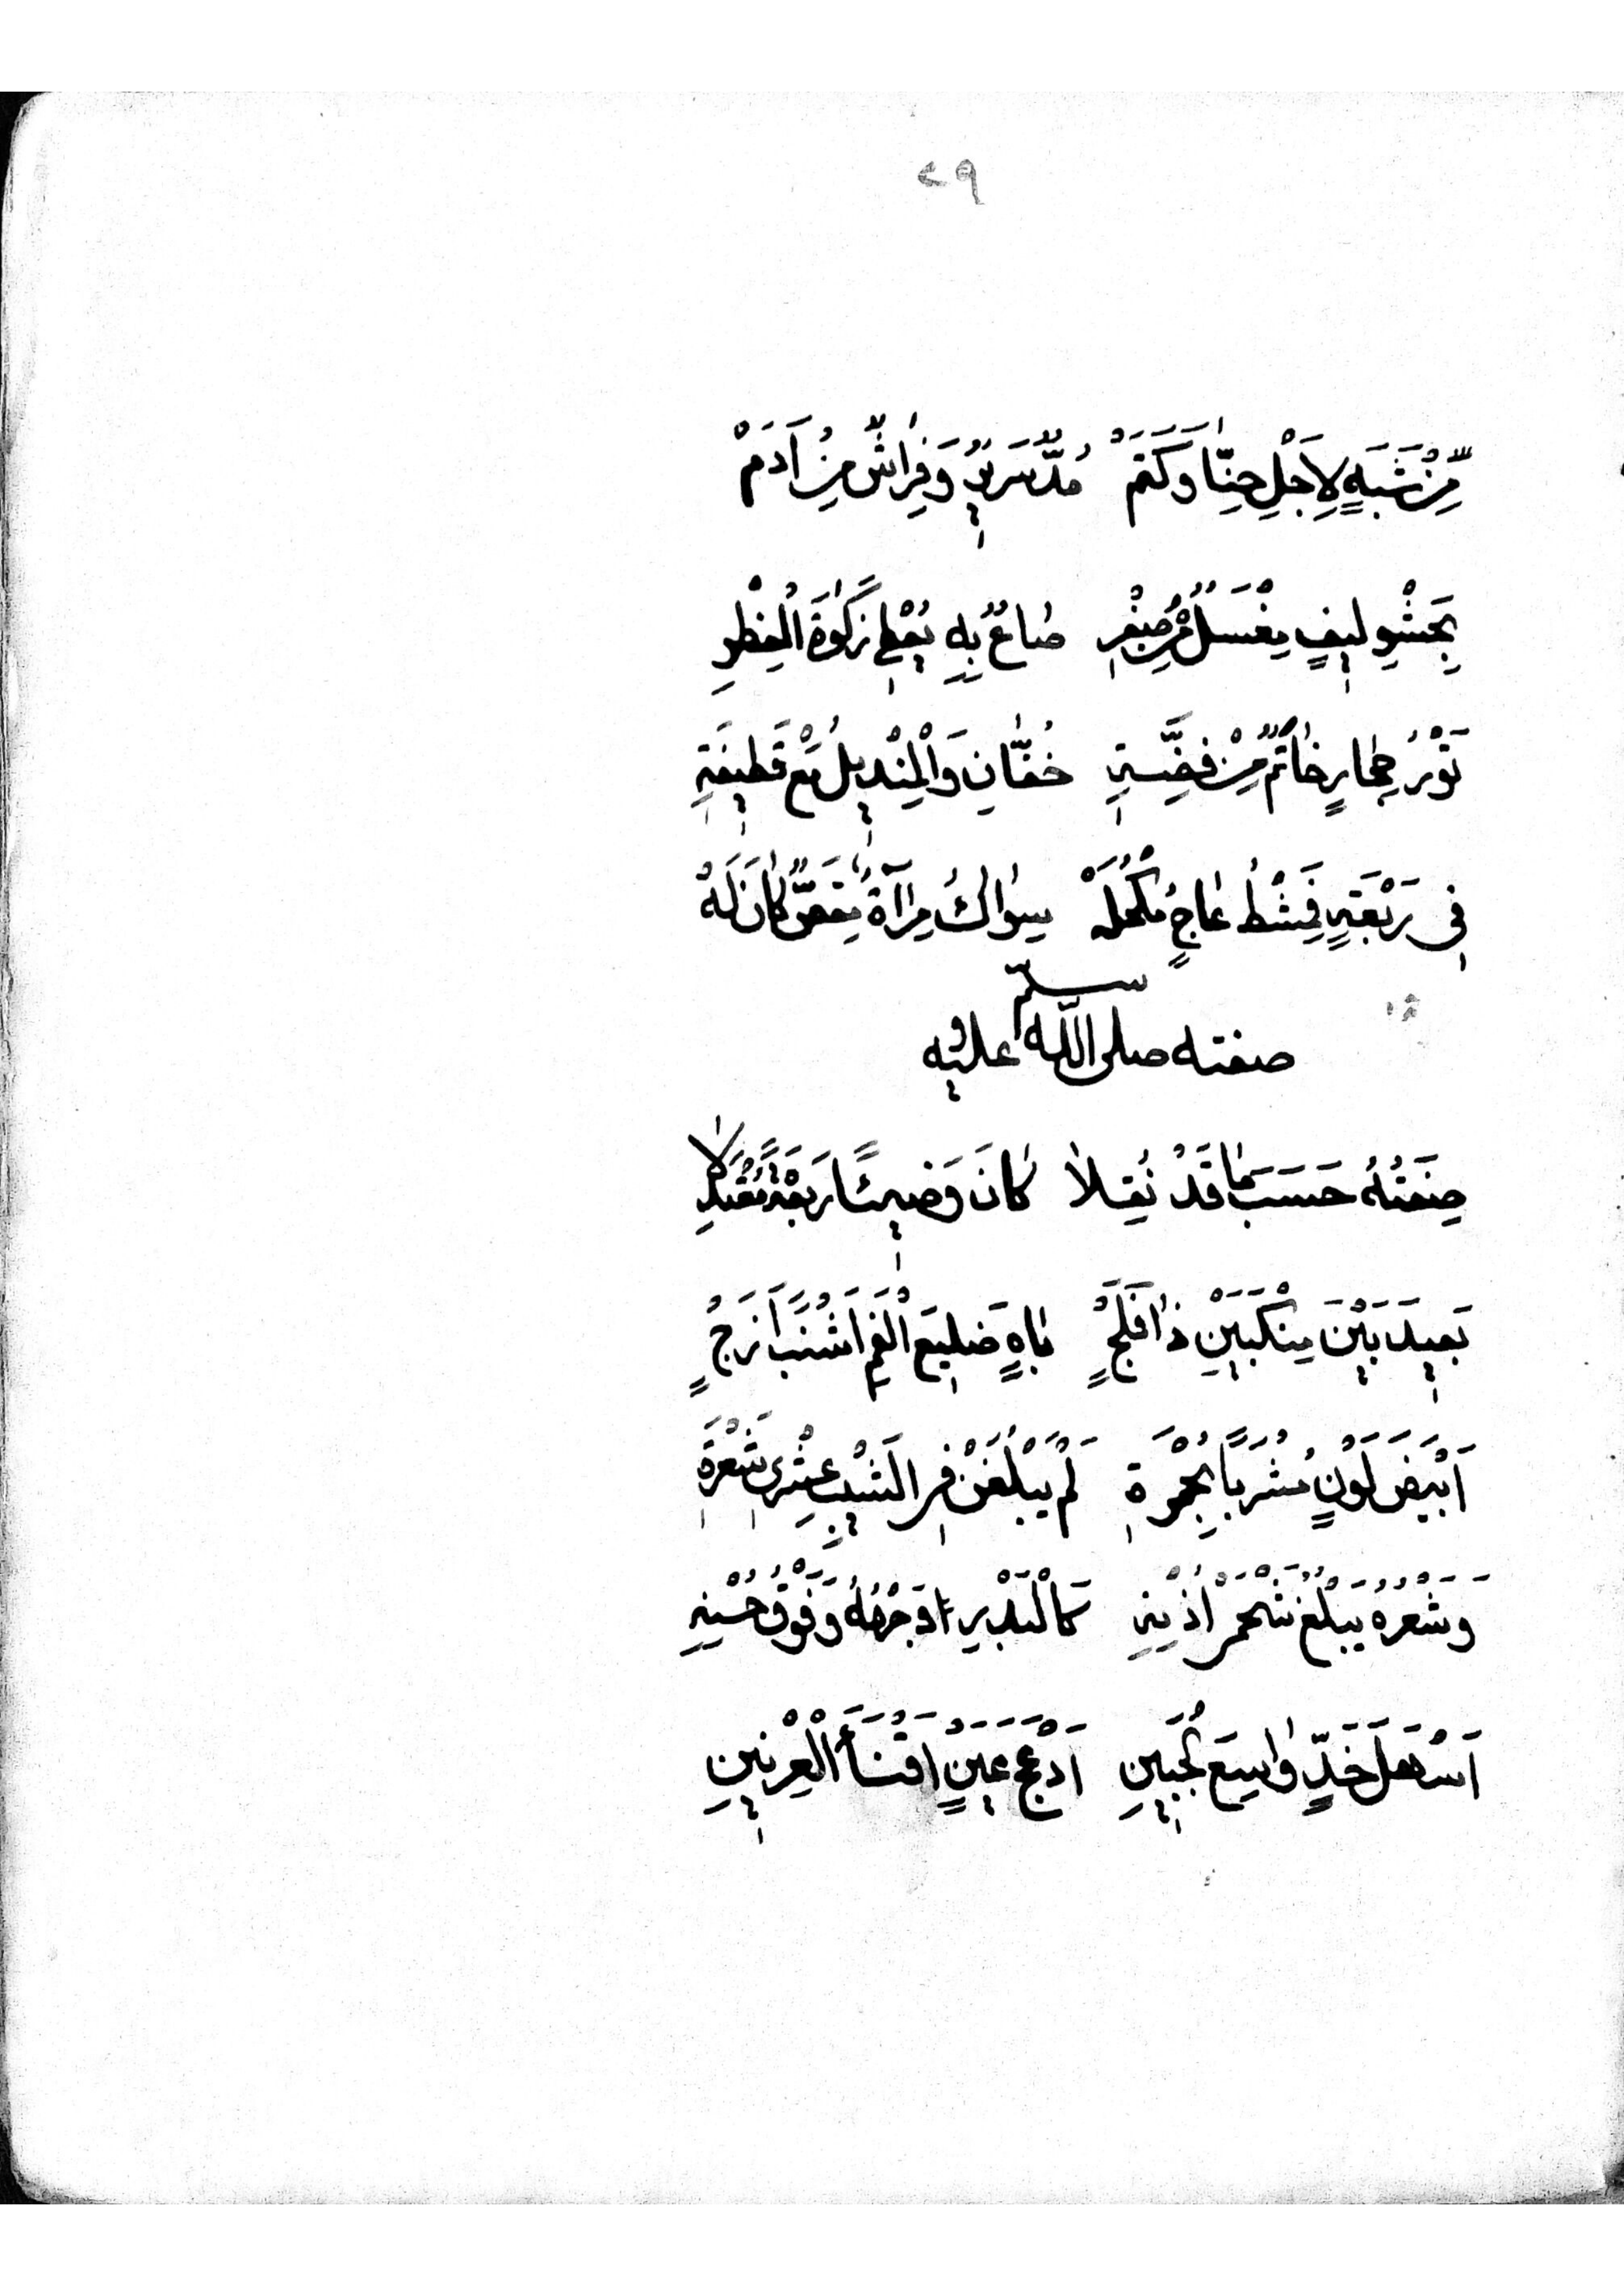 ٢٩
مِّنْ شَبَهٍ لِأَجْلِ حِنَّا وَكَتَمْ مُدٌّ سَرِيرٌ وَفِرَاشٌ مِنْ اَدَمْ
بِحَشْوِ لِيفٍ مِغْسَلٌ مِّنْ صُفْرِ صَاعٌ بِهِ يُعْطِي زَكٰوةَ الْفِطْرِ
تَوْرُ حِجَارٍ خَاتَمٌ مِّنْ فِضَّةِ خُفَّانِ وَالْمِنْدِيلُ مَعْ قَطِيفَةِ
فِى رَبْعَةٍ فَمِشْطُ عَاجٍ مُكْحُلَهْ سِوَاكُ مِرْاٰةٌ مِقَصٌّ كَانَ لَهُ
صفته صلى الله عليه وسلم
صِفَتُهُ حَسَبَ مَا قَدْ نُقِلَا كَانَ وَضِيئًا رَبْعَةً مُعْتَدِلَا
بَعِيدَ بَيْنَ مِنْكَبَيْنِ ذَا فَلَجٍ بَاهٍ ضَلِيعَ الْفَمِ اَشْنَبًا اَزَجٍّ
اَبْيَضَ لَوْنٍ مُشْرَبًا بِحُمْرَةِ لَمْ يَبْلُغَنْ فِى الشَّيْبِ عِشْرِى شَعْرَةِ
وَشَعْرُهُ يَبْلُغُ شَحْمَ اُذْنِهِ كَالْبَدْرِ وَجْهُهُ وَفَوْقَ حُسْنِهِ
اَسْهَلَ خَدٍّ وَاسِعَ الْجَبِينِ اَدْعَجَ عَيْنٍ اَقْنَأَ الْعِرْنِينِ